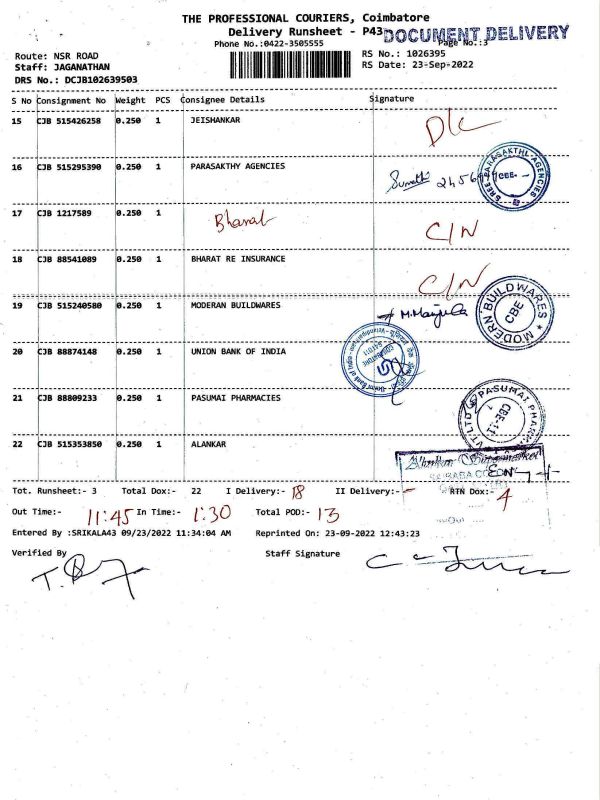 THE PROFESSIONAL COURIERS, Coimbatore
Delivery Runsheet - P43
DOCUMENT DELIVERY
Phone No.:0422-3505555
Page No.:3
Route: NSR ROAD
RS No.: 1026395
Staff: JAGANATHAN
RS Date: 23-Sep-2022
DRS No.: DCJB102639503
S No Consignment No Weight PCS Consignee Details Signature
15 CJB 515426258 0.250 1 JEISHANKAR D/C
16 CJB 515295390 0.250 1 PARASAKTHY AGENCIES Sumathi
SREE PARASAKTHI AGENCIES CBE-
17 CJB 1217589 0.250 1 Bharat C/N
18 CJB 88541089 0.250 1 BHARAT RE INSURANCE C/N
19 CJB 515240580 0.250 1 MODERAN BUILDWARES
MODERN BUILDWARES CBE
20 CJB 88874148 0.250 1 UNION BANK OF INDIA
21 CJB 88809233 0.250 1 PASUMAI PHARMACIES
PASUMAI PHARM CBE-11
22 CJB 515353850 0.250 1 ALANKAR
Tot. Runsheet:- 3 Total Dox:- 22 I Delivery:- 18 II Delivery:- - RTN Dox:- 4
Out Time:- 11:45 In Time:- 1:30 Total POD:- 13
Entered By :SRIKALA43 09/23/2022 11:34:04 AM Reprinted On: 23-09-2022 12:43:23
Verified By Staff Signature